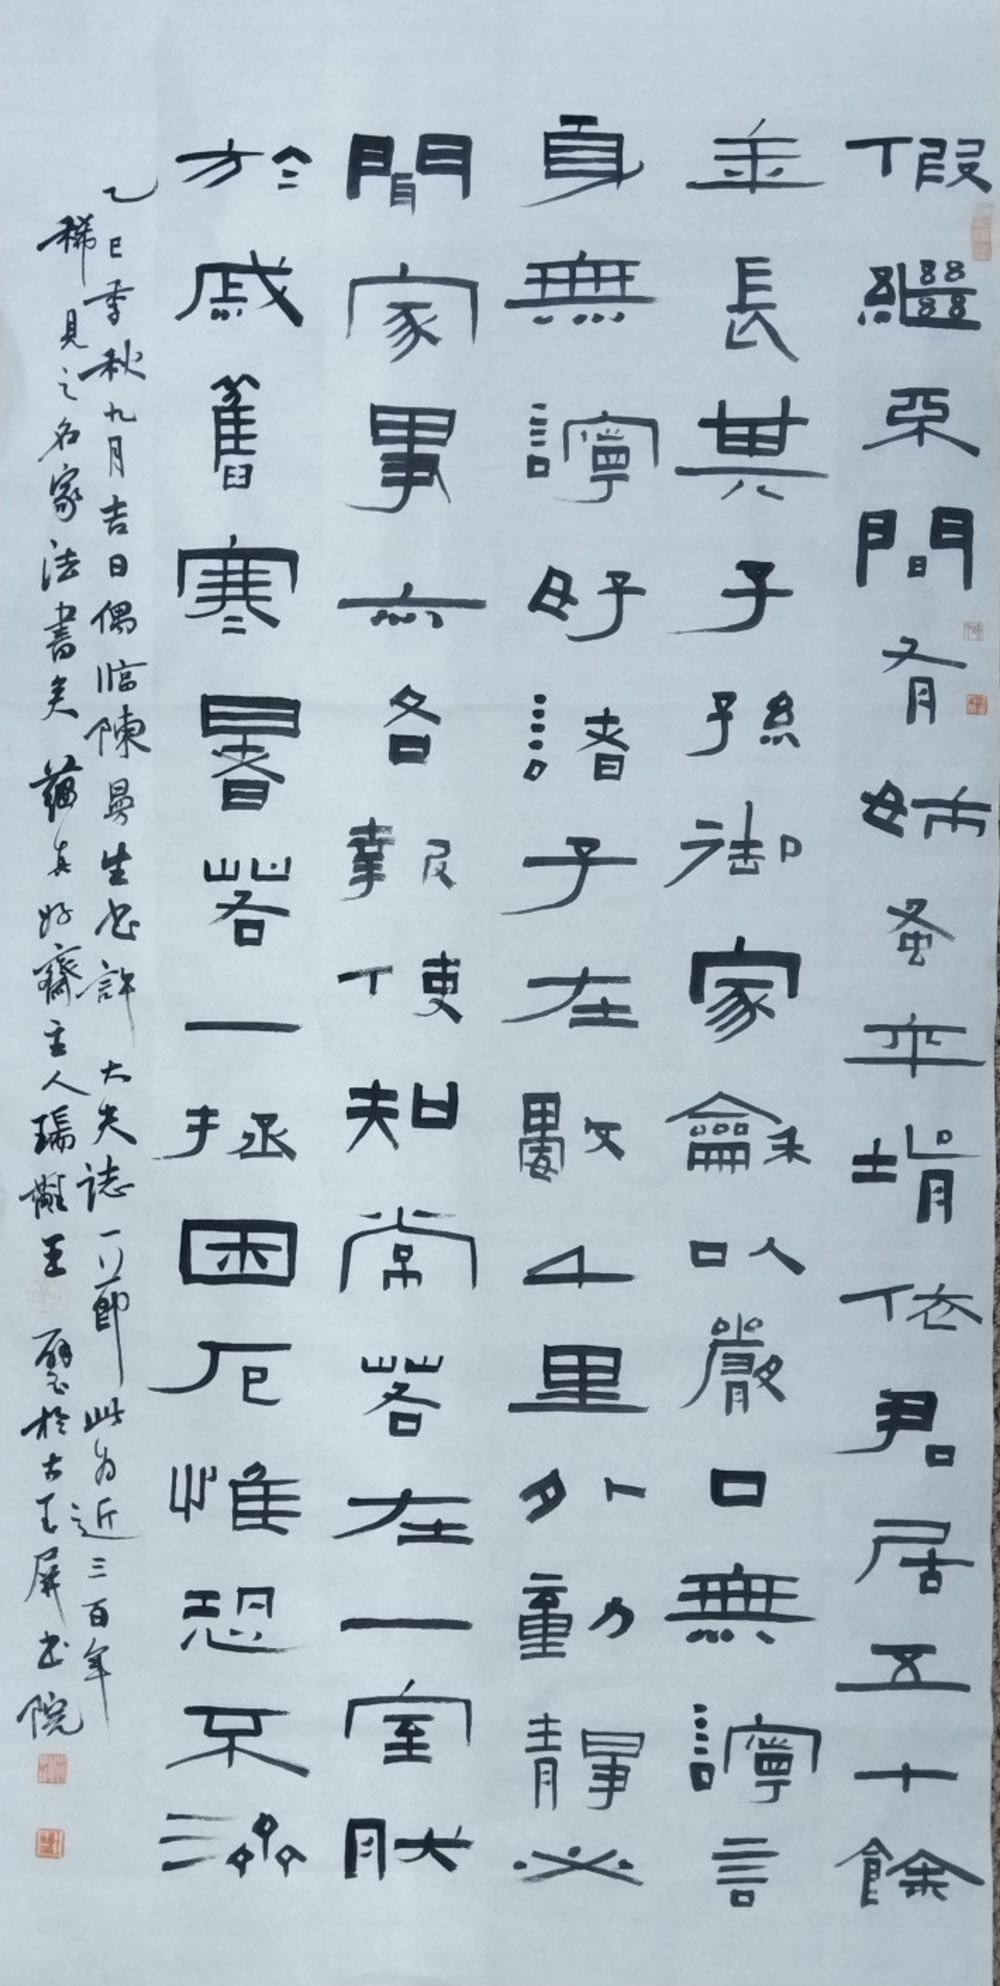 假繼間有姊蚤卒壻依君居五十餘
年長其子孫御家龢以嚴口無言
身無好諸子在數千里外動靜必
聞家事亦各報使知常若在一室肰
於戚舊寒暑若一拯困厄惟恐不濟
乙巳季秋九月吉日偶临陳曼生书許大夫誌一小節此为近三百年
稀見之名家法書矣蕴真好齋主人瑞王璧於古玉屏书院